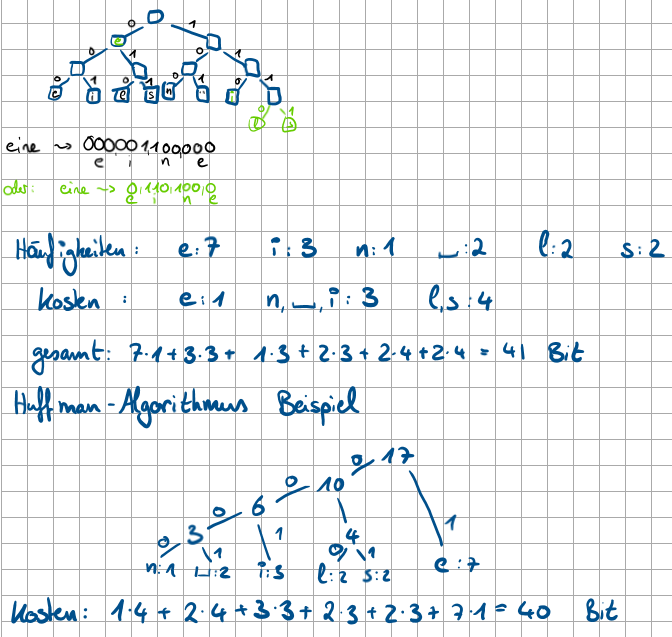 0 1
e
0 1 0 1
0 1 0 1 0 1 0 1
e i l s n i
0 1
l s
eine ~> 000001,100,000
e i n e
oder: eine ~> 0,110,100,0
e i n e
Häufigkeiten: e:7 i:3 n:1 ␣:2 l:2 s:2
Kosten : e:1 n,␣,i:3 l,s:4
gesamt: 7·1+3·3+ 1·3+2·3+2·4+2·4 = 41 Bit
Huffman-Algorithmus Beispiel
0 17
0 10
0 6 1
0 3 1 4
1 0 1
n:1 ␣:2 i:3 l:2 s:2 e:7
Kosten: 1·4 + 2·4 + 3·3 + 2·3 + 2·3 + 7·1 = 40 Bit